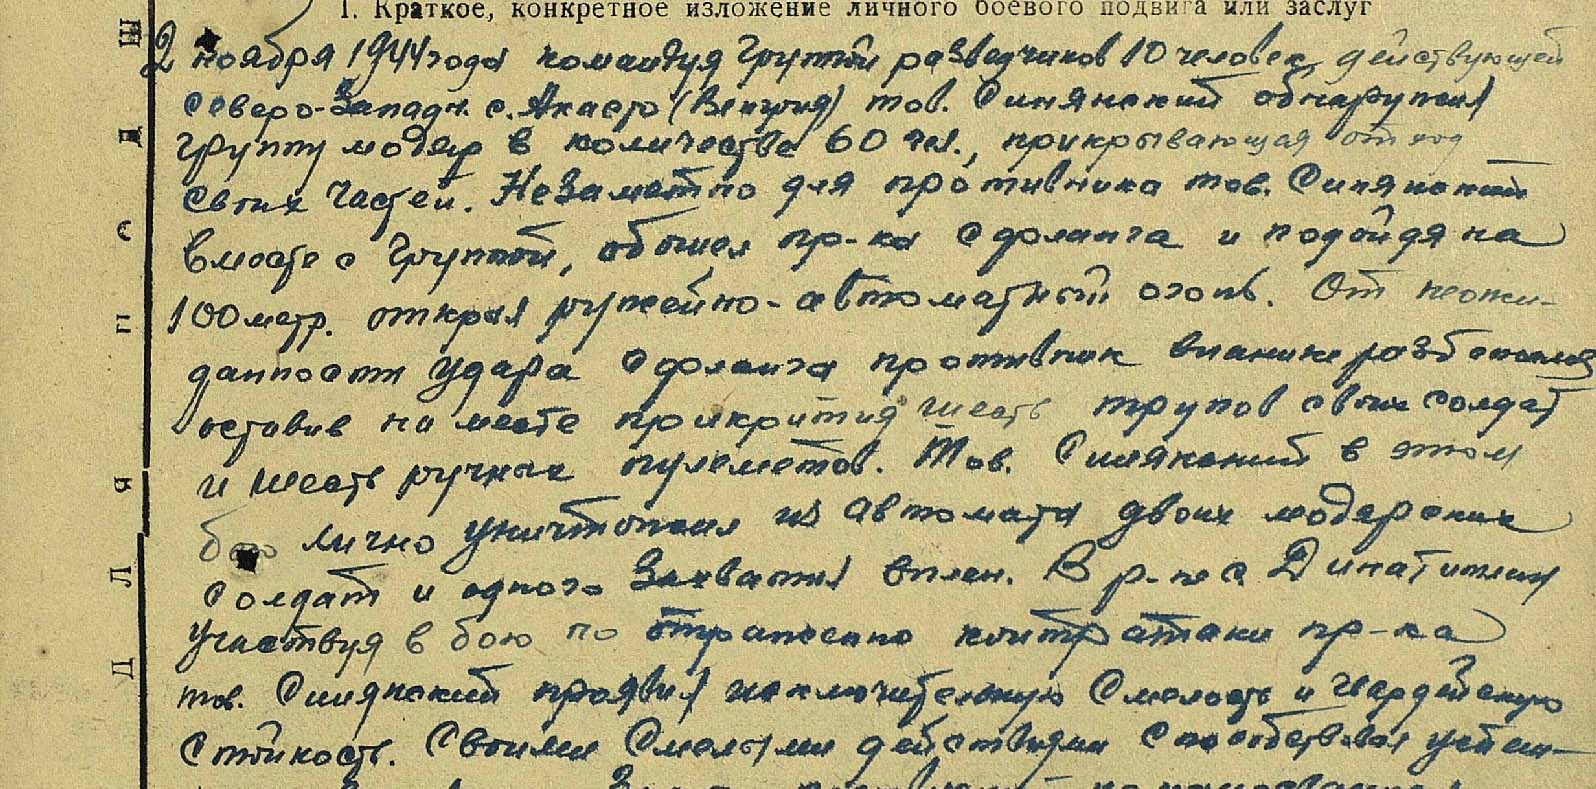 I. Краткое, конкретное изложение личного боевого подвига или заслуг
2 ноября 1944 года командуя группой разведчиков 10 человек, действующей
северо-западн. с. (Венгрия) тов. Синянский обнаружил
группу мадяр в количестве 60 чел., прикрывающая отход
своих частей. Незаметно для противника тов. Синянский
вместе с группой, обошел пр-ка с фланга и подойдя на
100 метр. открыл ружейно-автоматный огонь. От неожи-
данности удара с фланга противник в панике разбежался
оставив на месте прикрытия шесть трупов своих солдат
и шесть ручных пулеметов. Тов. Синянский в этом
бою лично уничтожил из автомата двоих мадярских
солдат и одного захватил в плен. В р-не с
участвуя в бою по отражению контратаки пр-ка
тов. Синянский проявил исключительную смелость и гвардейскую
стойкость. Своими смелыми действиями способствовал успеш-
ДЛЯ ПСДШ